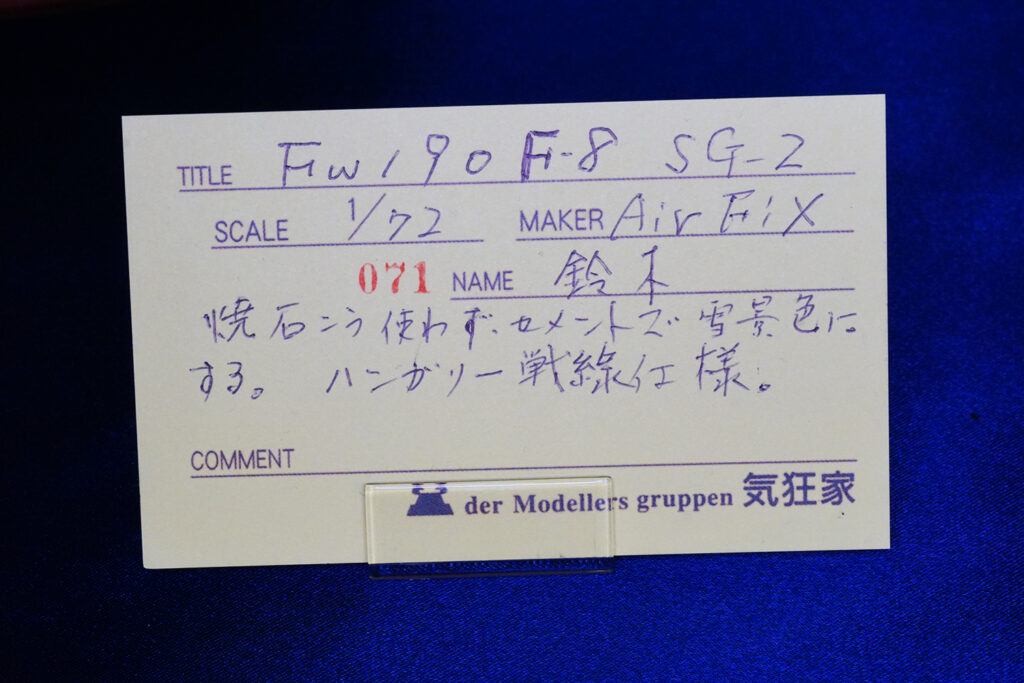 TITLE Fw190 F-8 SG-2
SCALE 1/72 MAKER AirFix
071 NAME 鈴木
焼石こう使わず、セメントで雪景色に
する。 ハンガリー戦線仕様。
COMMENT
der Modellers gruppen 気狂家